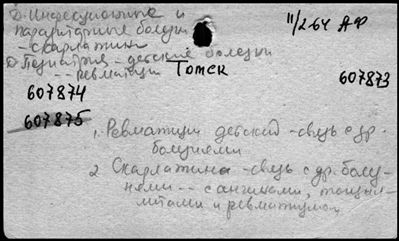 Д-Инфекционные и
паразитарные болезни
- скарлатина
11/2 64 АФ
Д Педиатрия - детские болезни
-- ревматизм Томск
607873
607874
607875
1. Ревматизм детский - связь с др.
болезнями
2 Скарлатина - связь с др. болез-
нями -- с ангинами, тонзил-
литами и ревматизмом